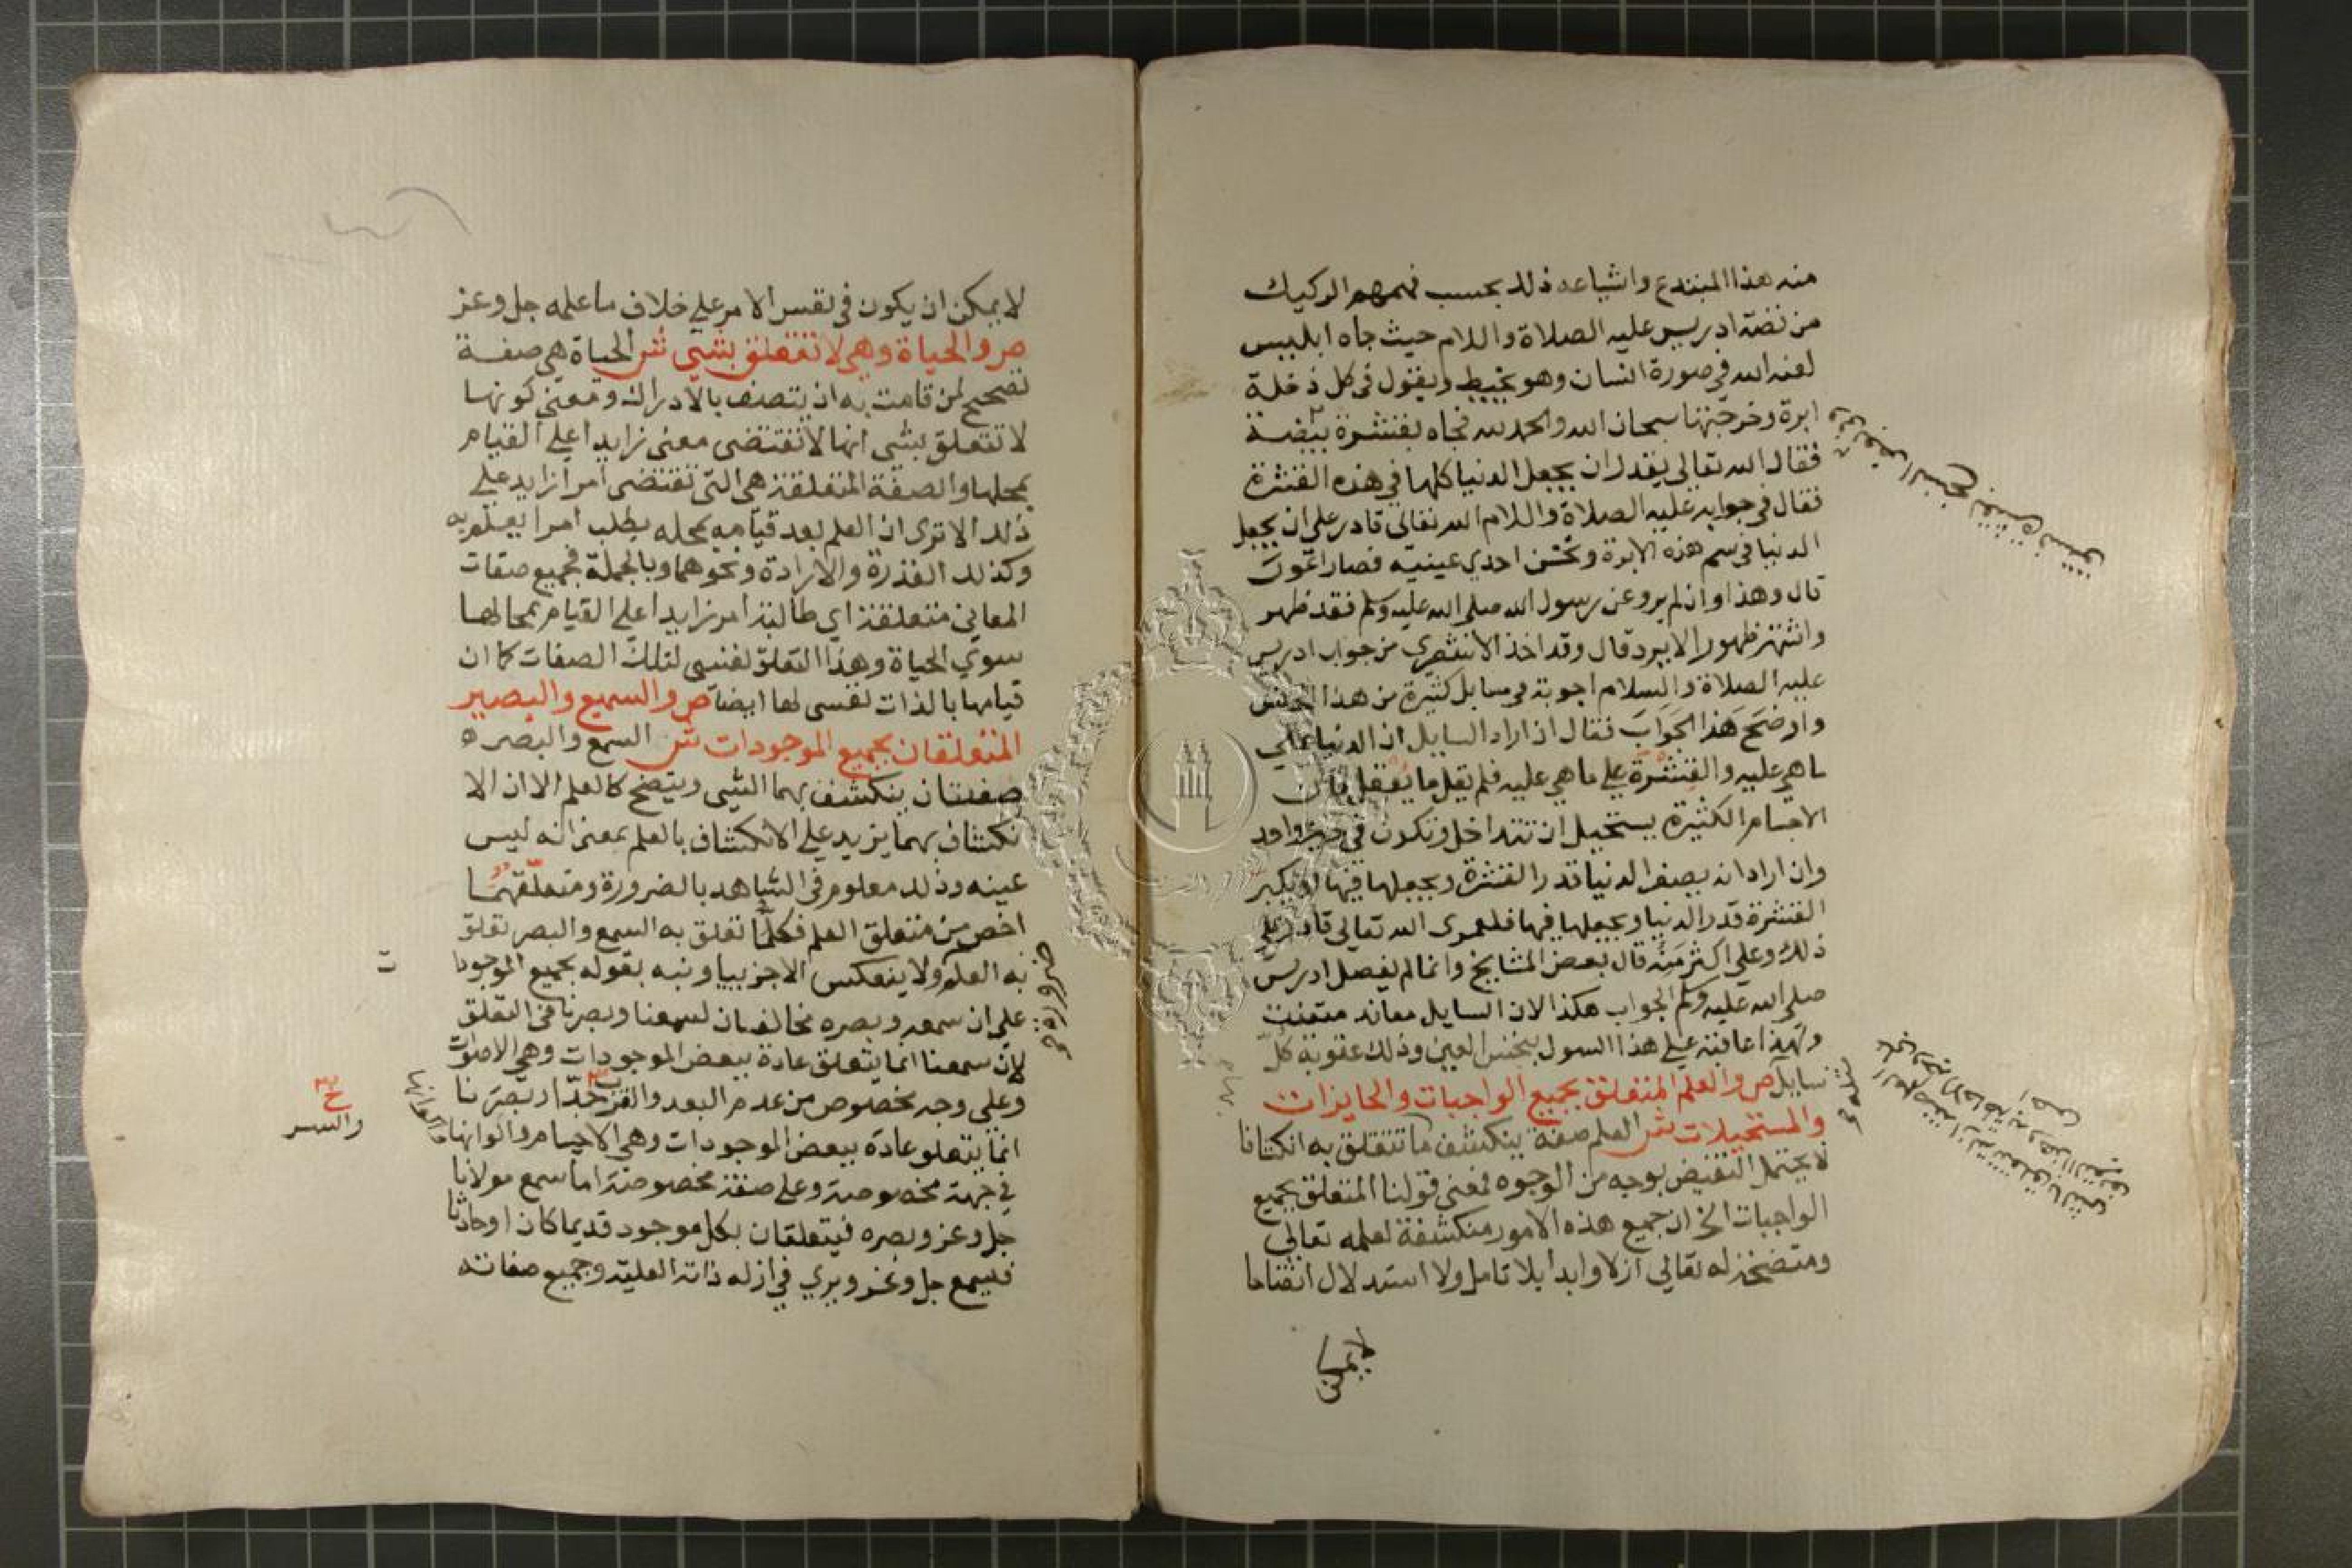 منه هذا المبتدع واشياعه ذلك بحسب فهمهم الركيك
من قصة ادريس عليه الصلاة والسلام حيث جاه ابليس
لعنه الله في صورة انسان وهو يخيط ويقول في كل دخلة
ابرة وخرجتها سبحان الله والحمد لله فجاه بقشرة بيضة
فقال الله تعالي يقدر ان يجعل الدنيا كلها في هذه القشرة
فقال في جوابه عليه الصلاة والسلام الله تعالى قادر على ان يجعل
الدنيا في سم هذه الابرة ونخس احدي عينيه فصار اعور
قال وهذا وان لم يرو عن رسول الله صلى الله عليه وسلم فقد ظهر
وانتشر ظهورا لا يرد قال وقد اخذ الاشعري من جواب ادريس
عليه الصلاة والسلام اجوبة في مسايل كثيرة من هذا الجنس
واوضح هذا الجواب فقال ان اراد السايل ان الدنيا علي
ما هي عليه والقشرة علي ما هي عليه فلم يقل ما يعقل فان
الاجسام الكثيرة يستحيل ان تتداخل وتكون في حيز واحد
وان اراد انه يصغر الدنيا قدر القشرة ويجعلها فيها او يكبر
القشرة قدر الدنيا ويجعلها فيها فلعمرى الله تعالي قادر علي
ذلك وعلي اكثر منه قال بعض المشايخ وانما لم يفصل ادريس
صلى الله عليه وسلم الجواب هكذا لان السايل معاند متعنت
ولهذا عاقبه علي هذا السول بنخس العين وذلك عقوبة كل
سايل ص والعلم المتعلق بجميع الواجبات والجايزات
والمستحيلات ش العلم صفة ينكشف بها ما تتعلق به انكشافا
لا يحتمل النقيض بوجه من الوجوه فمعنى قولنا المتعلق بجميع
الواجبات الخ ان جميع هذه الامور منكشفة لعلمه تعالي
ومتضحة له تعالي ازلا وابدا بلا تامل ولا استدلال اتضاحا
لا يمكن
لا يمكن ان يكون في نفس الامر علي خلاف ما علمه جل وعز
ص والحياة وهي لا تتعلق بشي ش الحياة هي صفة
تصحح لمن قامت به ان يتصف بالادراك ومعني كونها
لا تتعلق بشى انها لا تقتضى معنى زايدا علي القيام
بمحلها والصفة المتعلقة هي التي تقتضى امرا زايد علي
ذلك الا ترى ان العلم بعد قيامه بمحله يطلب امرا يعلم به
وكذلك القدرة والارادة ونحوهما وبالجملة فجميع صفات
المعاني متعلقة اي طالبة امر زايدا علي القيام بمحالها
سوي الحياة وهذا التعلق نفسى لتلك الصفات كما ان
قيامها بالذات نفسى لها ايضا ص والسميع والبصير
المتعلقان بجميع الموجودات ش السمع والبصر ه
صفتان ينكشف بهما الشي ويتضح كالعلم الا ان الا
نكشاف بهما يزيد علي الانكشاف بالعلم بمعنى انه ليس
عينه وذلك معلوم في الشاهد بالضرورة ومتعلقهما
اخص من متعلق العلم فكلما تعلق به السمع والبصر تعلق
به العلم ولا ينعكس الا جزييا ونبه بقوله بجميع الموجودا
ت
ضرورة
علي ان سمعه وبصره مخالفان لسمعنا وبصرنا في التعلق
لان سمعنا انما يتعلق عادة ببعض الموجودات وهي الاصوات
وعلي وجه مخصوص من عدم البعد والقرب جدا وبصرنا
والسر
انما يتعلق عادة ببعض الموجودات وهي الاجسام والوانها
في جهة مخصوصة وعلي صفة مخصوصة اما سمع مولانا
جل وعز وبصره فيتعلقان بكل موجود قديما كان او حادثا
فيسمع جل وعز ويري في ازله ذاته العلية وجميع صفاته